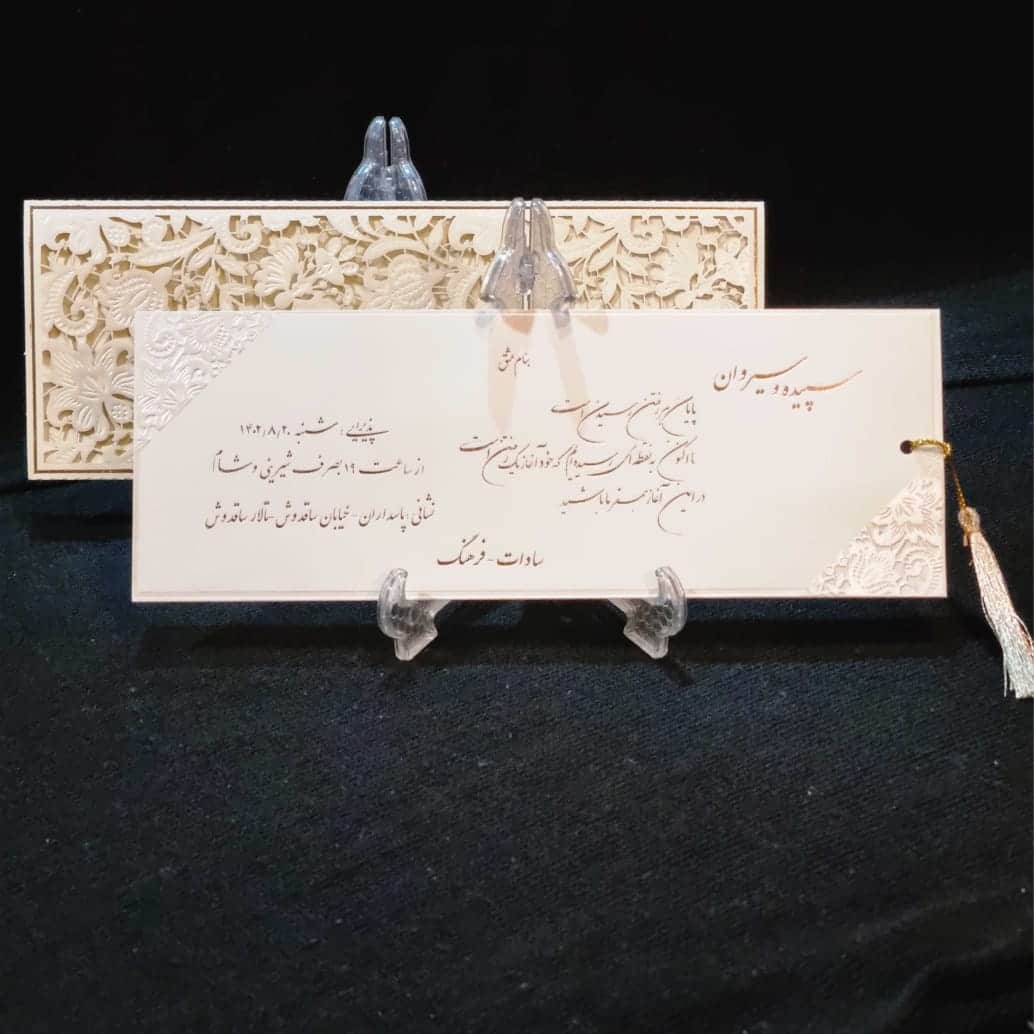 بنام عشق
سپیده و سیروان
پایان هر رفتن رسیدن است
تا اکنون به نقطه ای رسیده ایم که خود آغاز یک رفتن است
در این آغاز همسفر ما باشید
پذیرایی: شنبه ۱۴۰۲/۸/۲۰
از ساعت ۱۹ بصرف شیرینی و شام
نشانی: پاسداران-خیابان ساقدوش-تالار ساقدوش
سادات - فرهنگ